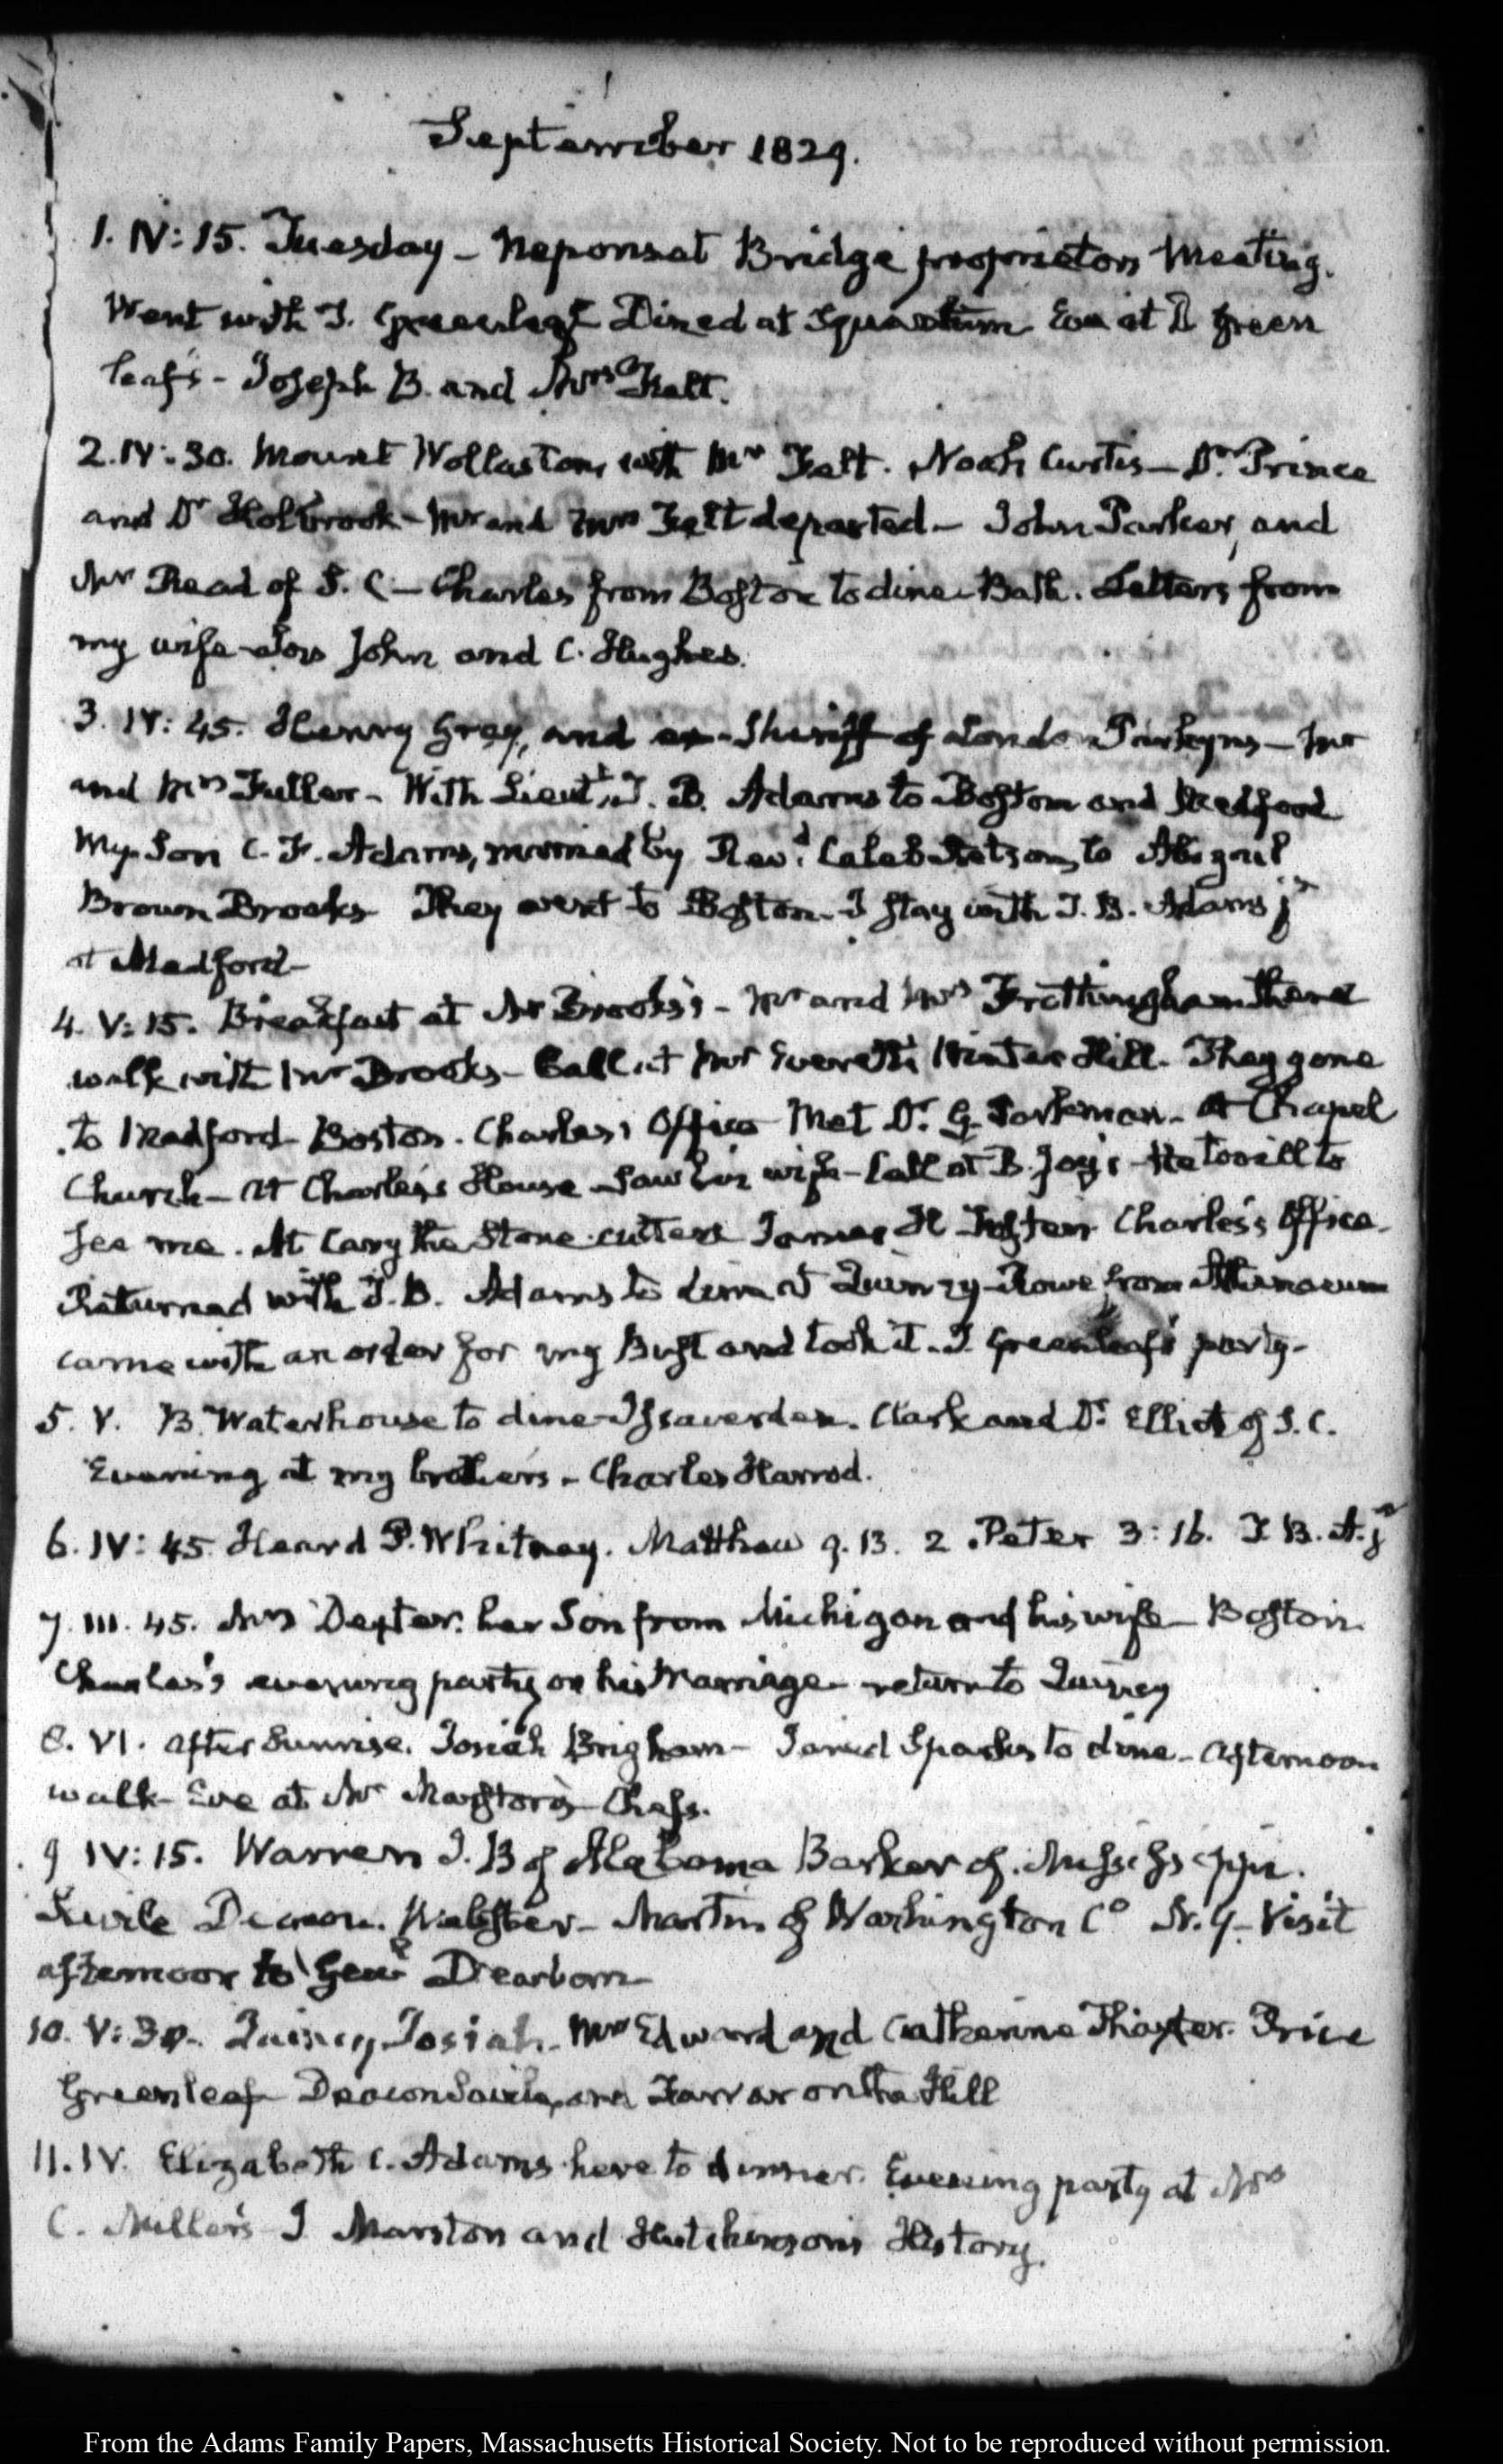 September 1829.
1. IV: 15. Tuesday – Neponset Bridge proprietors Meeting.
Went with T. Greenleaf Dined at Squantum Eve at D Green
leaf's – Joseph B. and Mrs Felt.
2. IV: 30. Mount Wollaston, with Mr Felt. Noah Curtis – Dr Prince
and Dr Holbrook – Mr and Mrs Felt departed – John Parker, and
Mr Read of S. C – Charles from Boston to dine – Bath. Letters from
my wife Son John and C. Hughes.
3. IV: 45. Henry Gray, and ex-Sheriff of London Parkyns – Mr
and Mrs Fuller – With Lieut. T. B. Adams to Boston and Medford
My Son C. F. Adams, married by Revd Caleb Stetson, to Abigail
Brown Brooks They went to Boston – I stay with T. B. Adams jr
at Medford –
4. V: 15. Breakfast at Mr Brooks's – Mr and Mrs Frothingham there
walk with Mr Brooks – Call at Mr Everett's Winter Hill. They gone
to Medford Boston. Charles's Office Met Dr G. Parkman – At Chapel
Church – At Charles's House Saw his wife – Call at B. Joy's – He too ill to
see me. At Cary the Stone-cutters James H Foster Charles's Office –
Returned with T. B. Adams to dine at Quincy – Rowe from Athenaeum
came with an order for my Bust and took it. T. Greenleaf's party –
5. V. B. Waterhouse to dine – Clark and Dr Elliot of S. C.
Evening at my brother's – Charles Harrod.
6. IV: 45. Heard P. Whitney. Matthew 9. 13. 2 Peter 3: 16. T. B. A. jr
7. III. 45. Mrs Dexter. her Son from Michigan and his wife – Boston
Charles's evening party on his Marriage – return to Quincy
8. VI. after Sunrise. Josiah Brigham – Jared Sparks to dine – afternoon
walk – Eve at Mr Marston's Chess.
9 IV: 15. Warren J. B of Alabama Barker of Mississippi.
Savile Deacon. Webster – Martin of Washington Co N. Y – Visit
afternoon to Genl Dearborn
10. V: 30 – Quincy, Josiah – Mrs Edward and Catherine Thaxter. Price
Greenleaf Deacon Savile, and Farrar on the Hill
11. IV. Elizabeth C. Adams here to dinner. Evening party at Mrs
C. Miller's J Marston and Hutchinson's History.
From the Adams Family Papers, Massachusetts Historical Society. Not to be reproduced without permission.